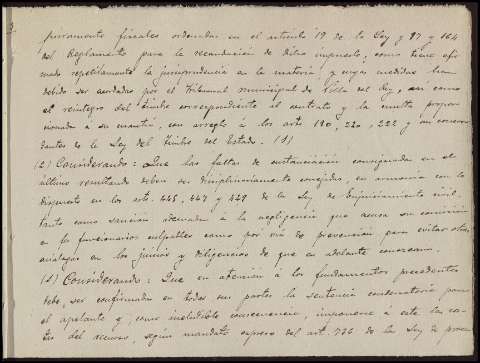 puramente fiscales ordenadas en el artículo 19 de la Ley y 97 y 164
del Reglamento para la recaudación de dicho impuesto, como tiene afir
mado repetidamente la jurisprudencia en la materia, y cuyas medidas han
debido ser acordadas por el Tribunal municipal de Villa del Rey, así como
el reintegro del timbre correspondiente al contrato y la multa propor
cionada á su cuantía, con arreglo á los arts 190, 220, 222 y sus concor
dantes de la Ley del Timbre del Estado. (1)
(2) Considerando: Que las faltas de sustanciación consignadas en el
último resultando deben ser disciplinariamente corregidas, en armonía con lo
dispuesto en los arts. 445, 447 y 449 de la Ley de Enjuiciamiento civil,
tanto como sanción adecuada á la negligencia que acusa su comisión
en los funcionarios culpables como por vía de prevención para evitar otras
análogas en los juicios y diligencias de que en adelante conozcan.
(1) Considerando: Que en atención á los fundamentos precedentes
debe ser confirmada en todas sus partes la sentencia condenatoria para
el apelante y, como ineludible consecuencia, imponerse á este las cos
tas del recurso, según mandato expreso del art. 736 de la Ley de proce